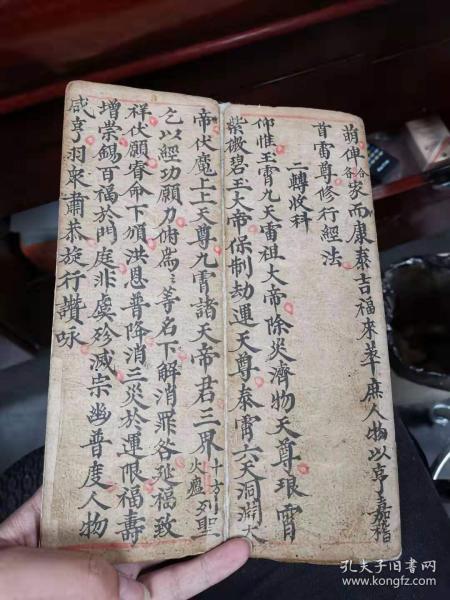 萌俾各合家而康泰吉福來萃庶人物以亨嘉稽
首雷尊修行經法
二轉收科
仰惟玉霄九天雷祖大帝除災濟物天尊琅霄
紫微碧玉大帝保制劫運天尊泰霄六天洞淵大
帝伏魔上上天尊九霄諸天帝君三界十方火癰列聖
乞以經功願力俯爲〻等名下解消罪各延福致
祥伏願眷命下頒洪恩普降消三災於運限福壽
增崇錫百福於門庭非虞殄滅宗幽普度人物
咸亨羽衆肅恭旋行讚咏
孔夫子旧书网
book.kongfz.com